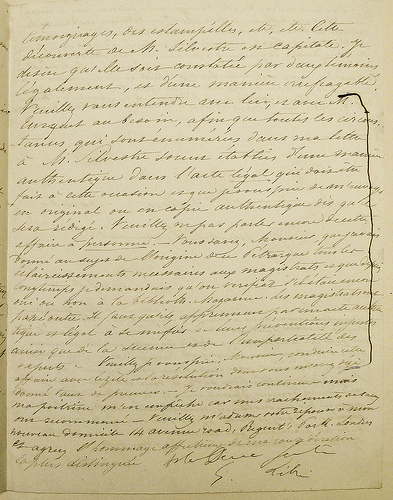 témoignages, des estampilles, etc, etc. Cette
découverte de M. Silvestre est capitale. Je
désire qu'elle soit constatée par deux témoins
légalement, et d'une manière irréfragable.
Veuillez vous entendre avec lui, et avec M.
au besoin, afin que toutes les circons-
tances, qui sont énumérées dans ma lettre
à M. Silvestre soient établies d'une manière
authentique dans l'acte légal qui doit être
fait à cette occasion et que je vous prie de m'envoyer
en original ou en copie authentique dès qu'il
sera rédigé. Veuillez ne pas parler encore de cette
affaire à personne. - Vous savez, Monsieur, que j'avais
donné au sujet de l'origine de le Pétrarque tous les
éclaircissements nécessaires aux magistrats et que depuis
longtemps je demandais qu'on vérifiât s'il était encore
oui ou non à la biblioth. Mazarine. des magistrats
légal à se méfier de leurs préventions injustes
ainsi que de la science et de l'impartialité des
experts. - Veuillez je vous prie, Monsieur, conduire cette
affaire avec le zèle et la résolution dont vous m'avez déjà
donné tant de preuves. - Je voudrais continuer mais
ma poitrine m'en empêche car mes crachements de sang
ont recommencé - Veuillez m'adresser votre réponse à mon
nouveau domicile 14 avenue road, Regent's Park. Londres
et agréez l'hommage affectueux de ma considération
la plus distinguée
G. Libri